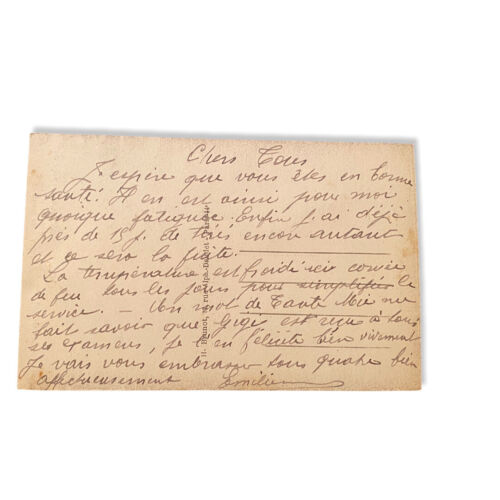 Chers Tous
J'espère que vous êtes en bonne
santé. Il en est ainsi pour moi
quoique fatigué. Enfin j'ai déjà
près de 15 j. de tirés encore autant
et ce sera la fuite.
La température est froide ici corvée
de feu tous les jours pour simplifier le
service. - Un mot de Tante me
fait savoir que Gigi est reçu à tous
ses examens, je l'en félicite bien vivement
Je vais vous embrasser tous quatre bien
affectueusement Emilien
H. Brunot, rue Alph-Daudet